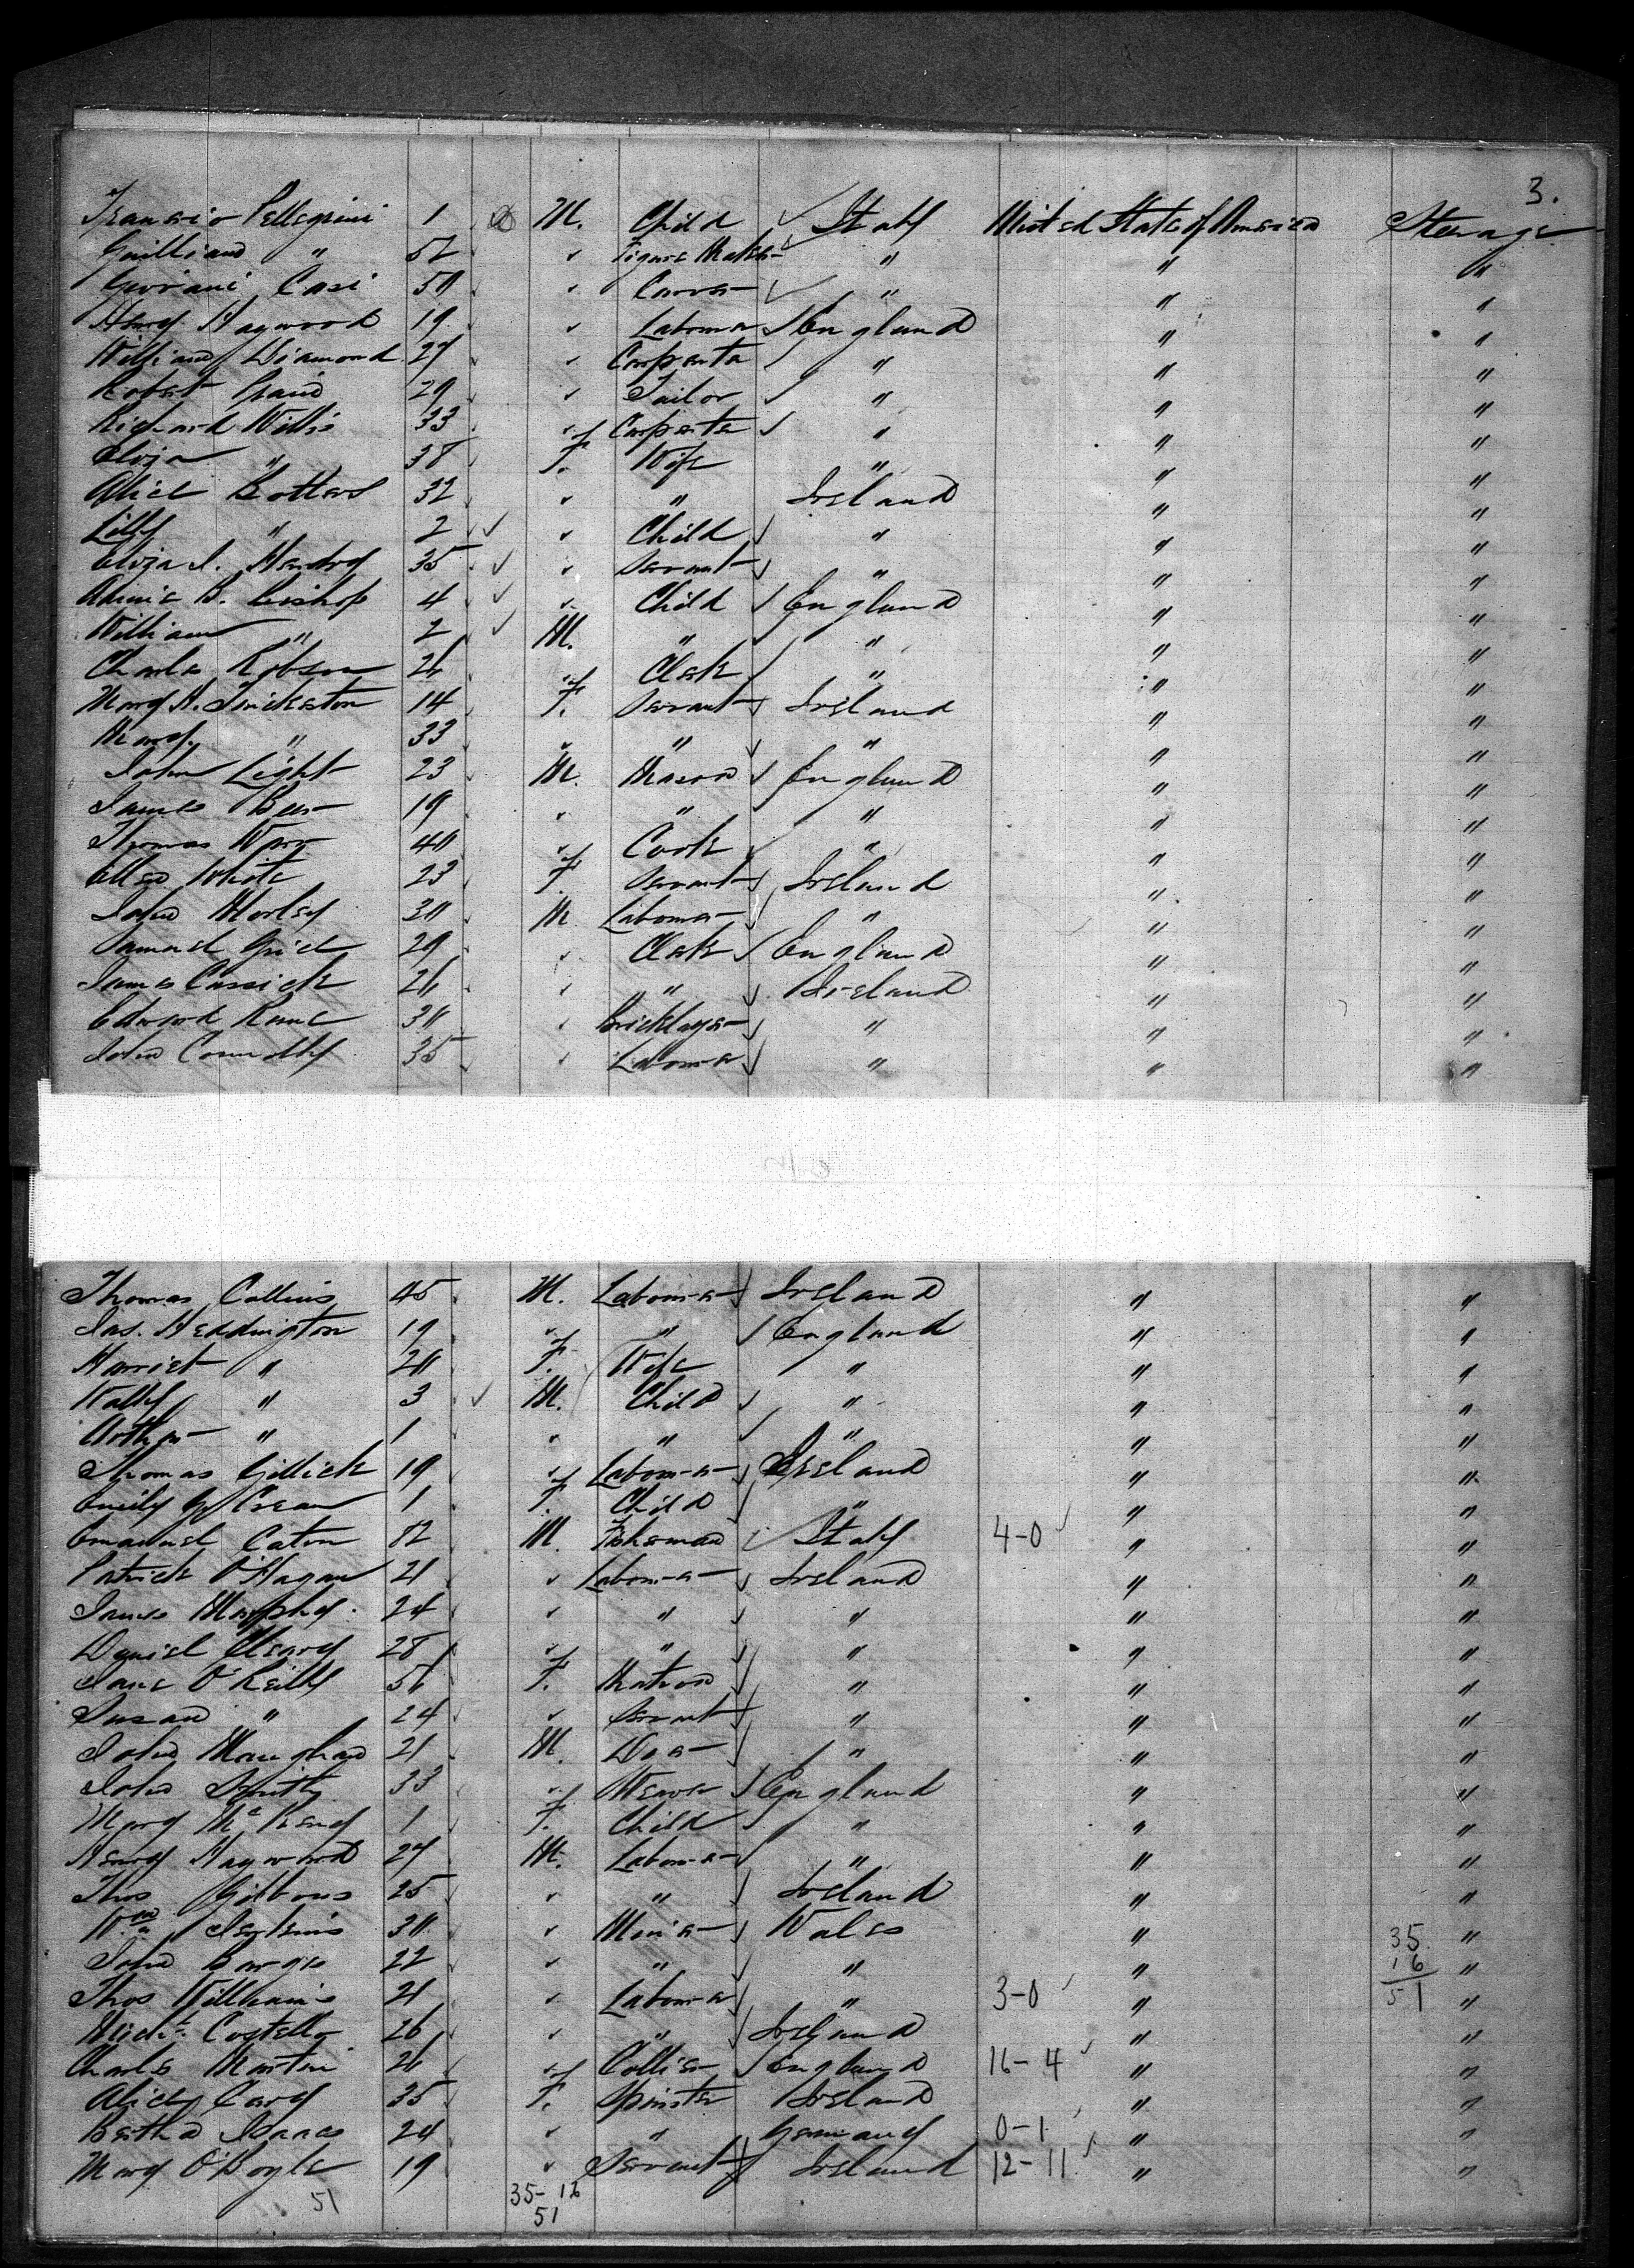 3.
Pellegrini 1 M. Child Italy United States of America Steerage
" 52 " Figure Maker " " "
Casi 50 " Carver " " "
Henry Haywood 19 " Labourer England " "
William Diamond 27 " Carpenter " " "
Robert 29 " Tailor " " "
Richard Willis 33 " Carpenter " " "
Eliza " 38 F. Wife " " "
Alice Botterl 32 " " Ireland " "
Lilly " 2 " Child " " "
Eliza J. Hendry 35 " Servant " " "
Annie B. Bishop 4 " Child England " "
William " 2 M. " " " "
Charles Robson 26 " Clerk " " "
Mary A. 14 F. Servant Ireland " "
Mary " 33 " " " " "
John Light 23 M. Mason England " "
James Beer 19 " " " " "
Thomas 40 " Cook " " "
Ellen White 23 F. Servant Ireland " "
John Morley 30 M Labourer " " "
Samuel Grice 29 " Clerk England " "
James Cassick 26 " " Ireland " "
Edward 30 " Bricklayer " " "
John Connolly 35 " Labourer " " "
Thomas Collins 45 M. Labourer Ireland " "
Jas. Heddington 19 " " England " "
Harriet " 20 F. Wife " " "
Wally " 3 M. Child " " "
Arthur " 1 " " " " "
Thomas Gillick 19 " Labourer Ireland " "
Emily Crean 1 F. Child " " "
Emanuel Caton 52 M. Fisherman Italy 4-0 " "
Patrick O'Hagan 21 " Labourer Ireland " "
James Murphy 24 " " " " "
Daniel Cleary 28 " " " " "
Jane O'Reilly 56 F. Matron " " "
Susan " 24 " Servant " " "
John Maughan 21 M. " " "
John Smith 33 " Weaver England " "
Mary 1 F. Child " " "
Henry Hayward 27 M. Labourer " " "
Thos Gibbons 25 " " Ireland " "
Wm Jenkins 30 " Miner Wales " 35 "
John Burgis 22 " " " " 16 "
Thos Williams 21 " Labourer " 3-0 " 51 "
Costello 26 " " Ireland " "
Charles Martin 26 " Collier England 16-4 " "
Alice Carey 35 F. Spinster Ireland " "
Bertha Isaacs 24 " " Germany 0-1 " "
Mary O'Boyle 19 " Servant Ireland 12-11 " "
51 35-16
51